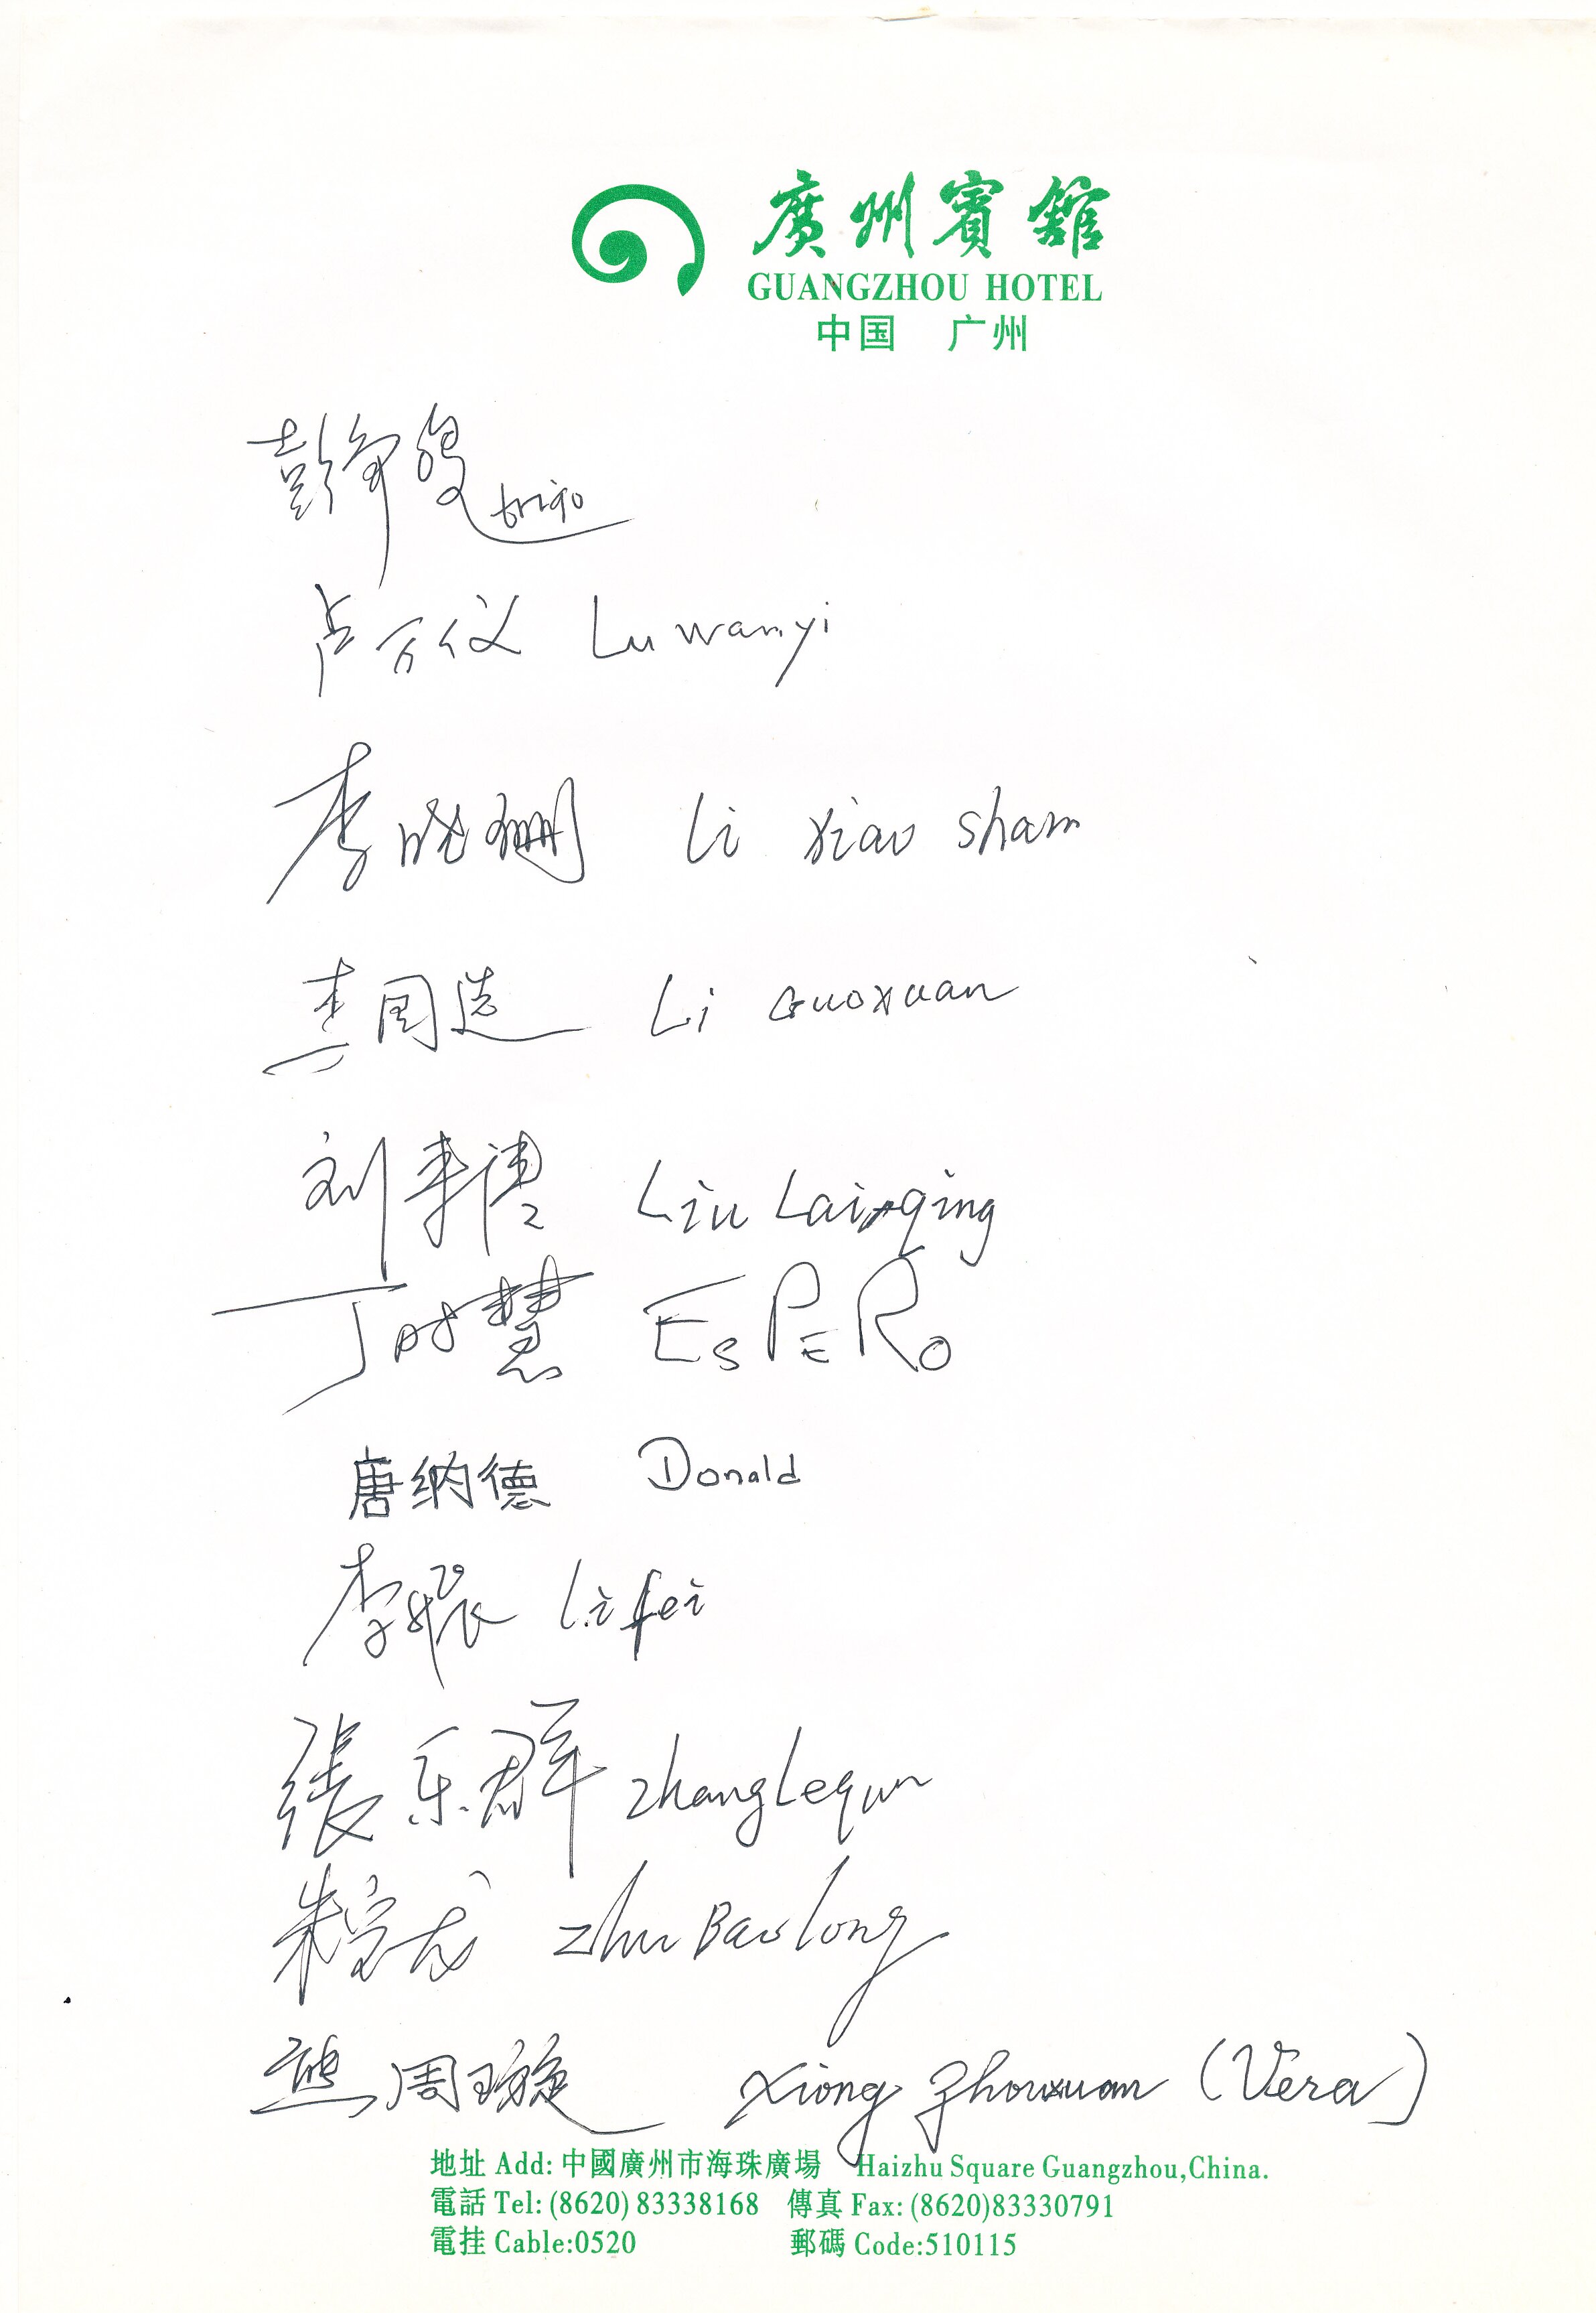 廣州賓館
GUANGZHOU HOTEL
中国 广州
彭争
卢万仪 Lu wanyi
李晓珊 Li xiao shan
李国选 Li Guoxuan
刘来 Liu Lai qing
丁时慧 EsPERo
唐纳德 Donald
李 Li fei
張乐群 zhang Lequn
朱宝龙 zhu Baolong
熊周璇 Xiong Zhouxuan (Vera)
地址 Add: 中國廣州市海珠廣場 Haizhu Square Guangzhou,China.
電話 Tel: (8620) 83338168 傳真 Fax: (8620)83330791
電挂 Cable:0520 郵碼 Code:510115